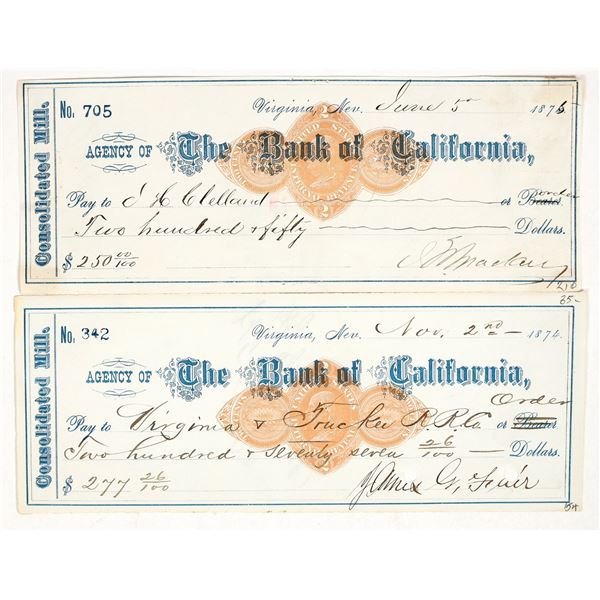 Consolidated Mill.
No. 705
Virginia, Nev. June 5 1875
AGENCY OF The Bank of California,
Pay to J H Clelland or Bearer. order
Two hundred & fifty Dollars.
$ 250 00/100
210
35-
Consolidated Mill.
No. 342
Virginia, Nev. Nov. 2nd 1874.
AGENCY OF The Bank of California,
Order
Pay to Virginia & Truckee R.R.Co or Bearer.
Two hundred & Seventy seven 26/100 Dollars.
$ 277 26/100
James G. Fair